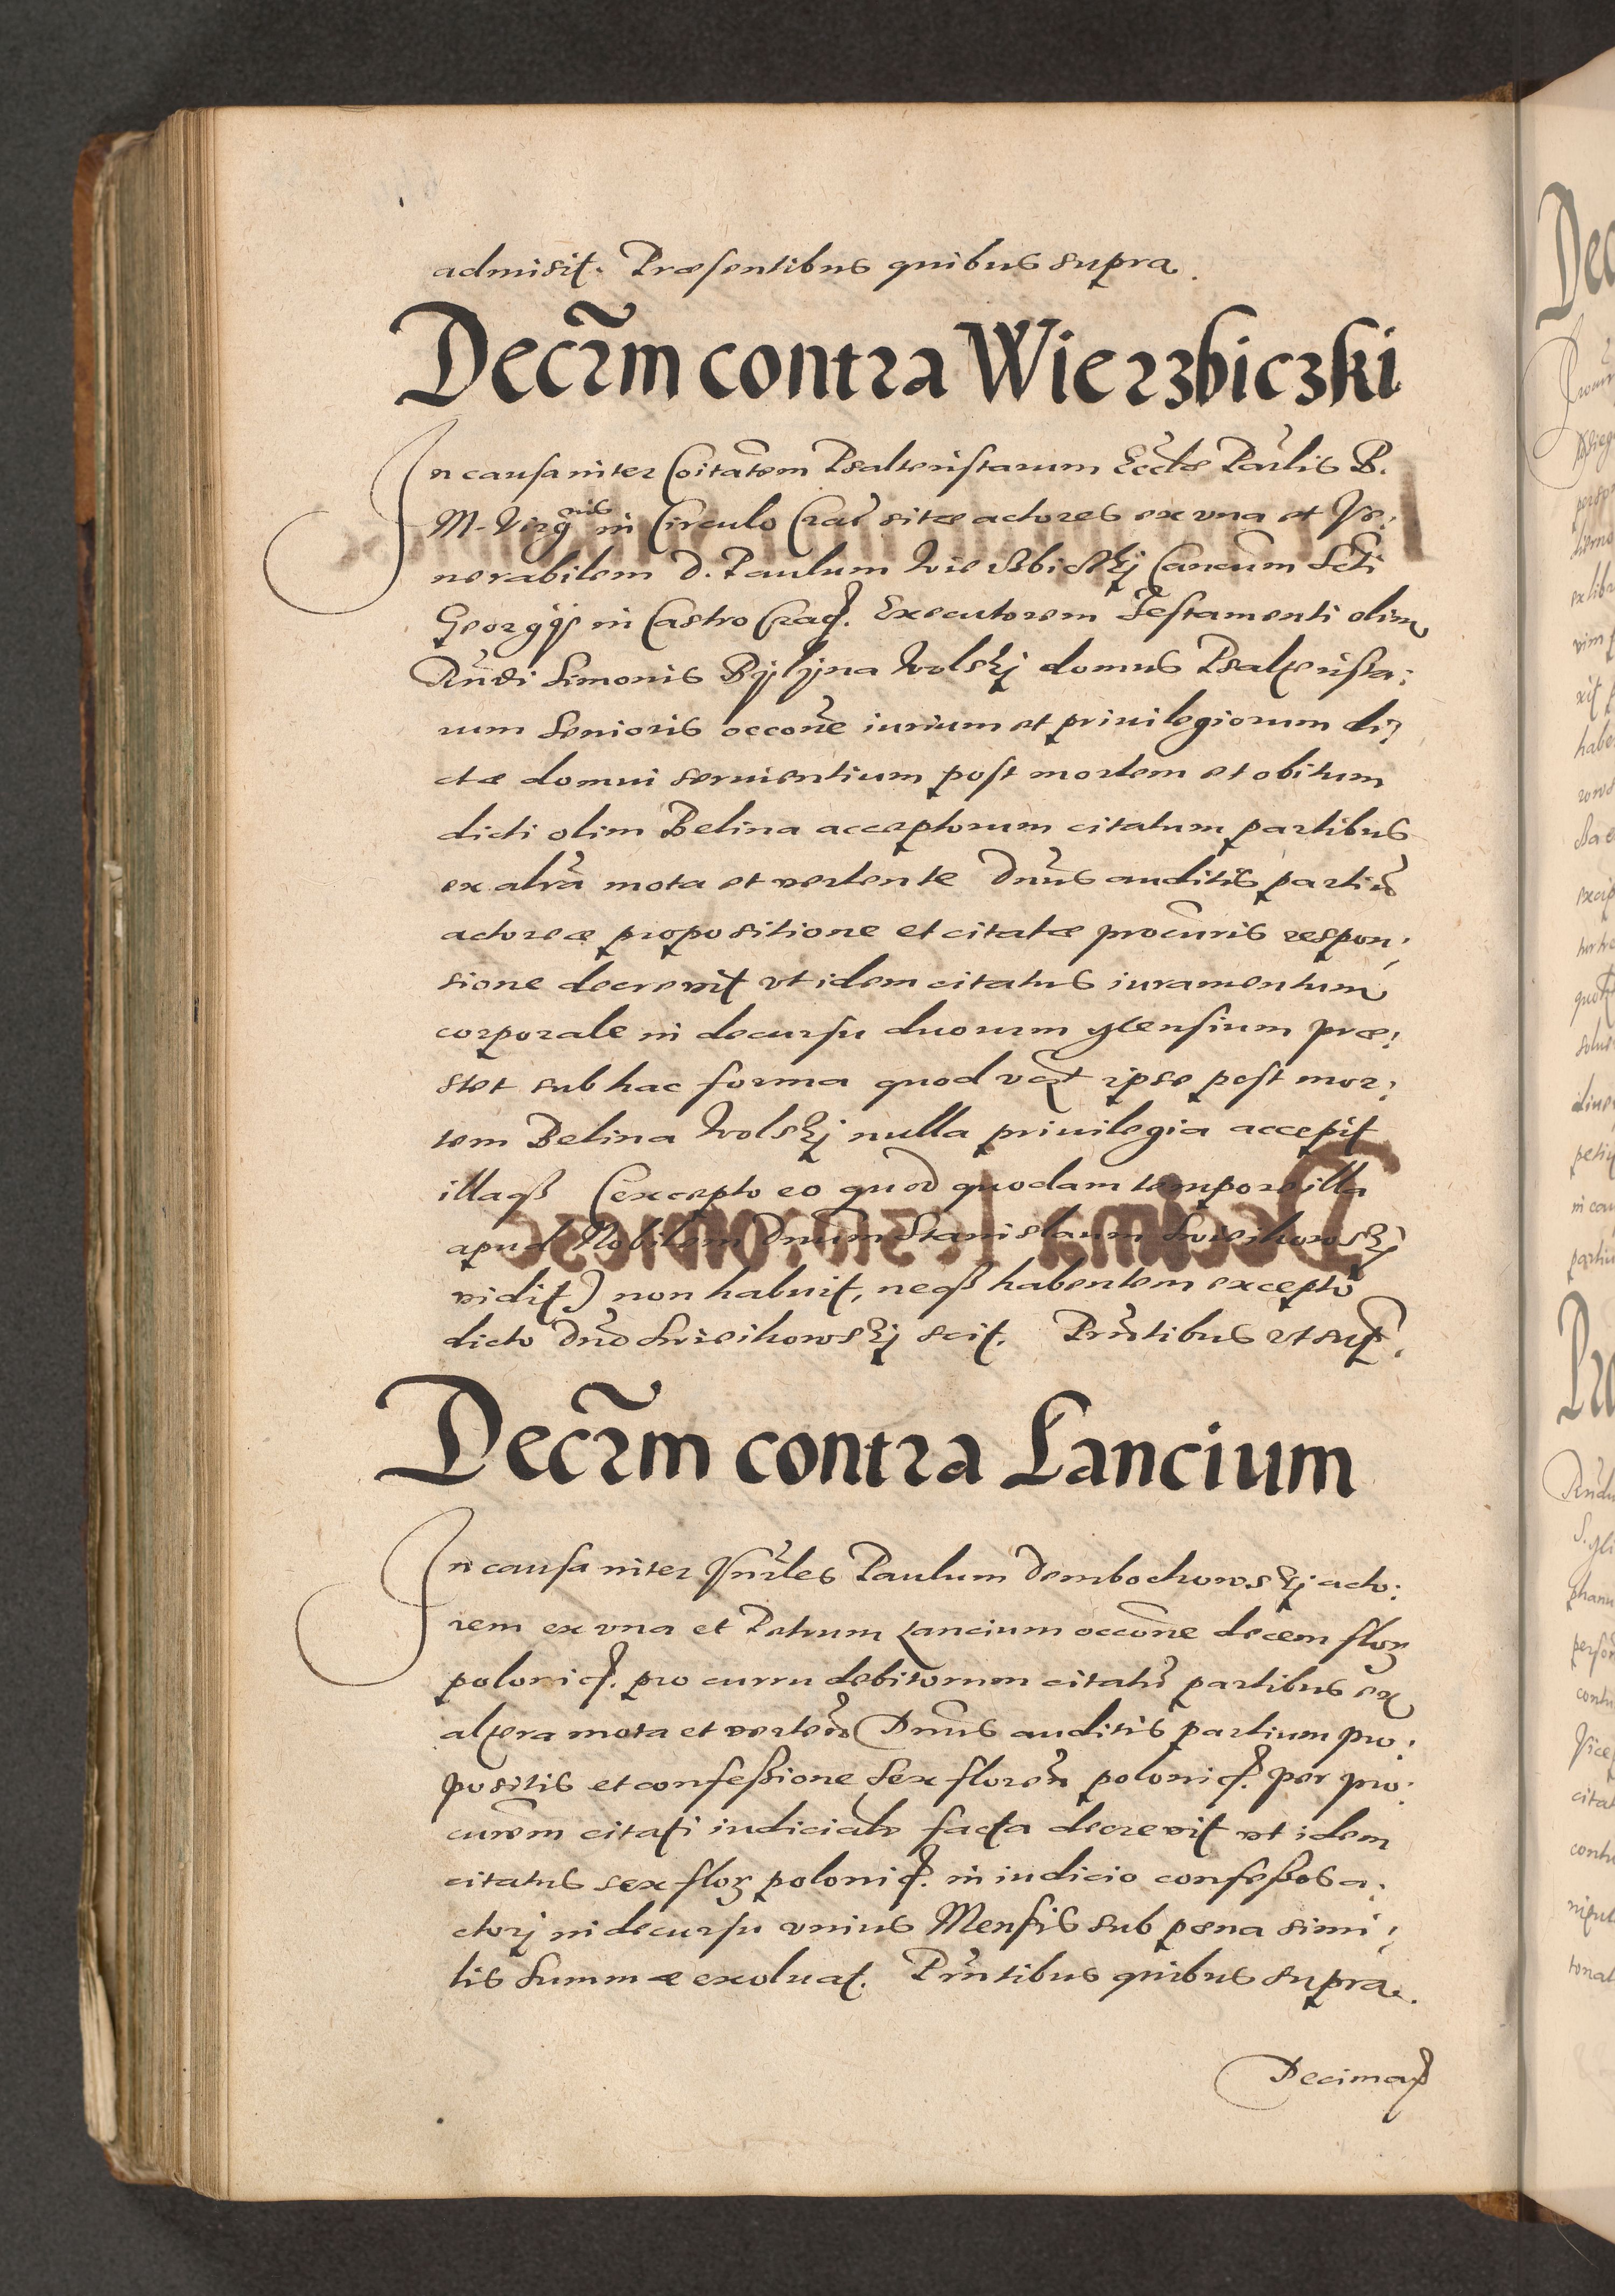 admisit. Præsentibus quibus supra.
Decr̃m contra Wierzbiczki
In causa inter Coĩtatem Psalteristarum Eccl̃æ Par̃lis B.
M. Virginis in Circulo Crac̃ sitæ actores ex vna et Ve:
nerabilem D. Paulum Wierzbiczkij Canc̃um Scti
Georgij in Castro Crac. Executorem Testamenti olim
Rñdi Simonis Bijlijna Wolskj domus Psalterista:
rum Senioris occoñe iurium et priuilegiorum di:
ctæ domui seruientium post mortem et obitum
dicti olim Belina acceptorum citatum partibus
ex altr̃a mota et vertente Dnũs auditis partiũ
actoreæ propositione et citatæ procuris respon:
sione decrevit vt idem citatus iuramentum
corporale in decursu duorum mensium præ:
stet sub hac forma quod vz̃ ipse post mor:
tem Belina Wolskj nulla priuilegia accepit
illaqз (excepto eo quod quodam tempore illa
apud Nobilem Dnũm Stanislaum Swieikowskj
vidit) non habuit, neqз habentem excepto
dicto Dnõ Swieikowskj scit. Prñtibus vt sup.
Decr̃m contra Lancium
In causa inter Vnr̃les Paulum Dembochowskj acto:
rem ex vna et Petrum Lancium occoñe decem flor
polonic. pro curru debitorum citatũ partibus ex
altera mota et verteñ Dnũs auditis partium pro:
positis et confeßione Sex floreñ polonic. per pro:
curem̃ citati iudicialr̃ facta decrevit vt idem
citatus sex flor polonic. in iudicio confeßos a:
ctorj in decursu vnius Mensis sub pæna simi:
lis Summæ exoluat. Prñtibus quibus supra.
Decimaꝝ